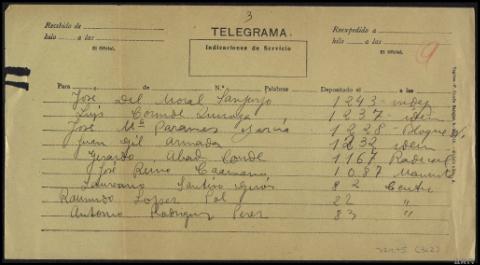 3
Recibido de
hilo a las
El Oficial,
TELEGRAMA
Indicaciones de Servicio
Reexpedido a
hilo a las
El Oficial,
9
Para de N.º Palabras Depositado el a las
José del Moral Sanjurjo 1243 - indep
Luis Cornide Quiroga 1237 - idem
José Mª Paramés García 1228 -
Juan Gil Armada 1232 idem
Gerardo Abad Conde 1167 Radical
José Reino Caamaño 1087
Laureano Santiso Girós 82 Centro
Raimundo Lopez Pol 22 "
Antonio Rodriguez Perez 83 "